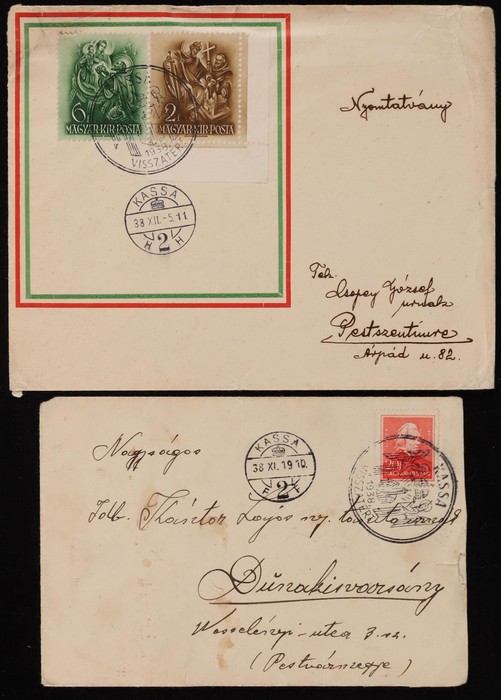 6
2
MAGYAR·KIR·POSTA
MAGYAR·KIR·POSTA
KASSA
1938
VISSZATÉRT
Nyomtatvány
KASSA
38 XII.-5.11
H 2 H
Tek.
József
urnak
Pestszentimre
Árpád u. 82.
Nagyságos
KASSA
38 XI.19 10.
F 2 F
20f
KASSA
1938
VISSZATÉRT
Lajos ny.
Dunakisvarsány
Wesselényi-utca 3. sz.
(Pestvármegye)